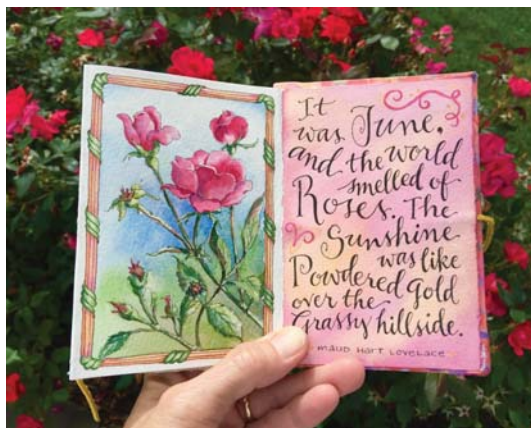 It
was June,
and the world
smelled of
Roses. The
Sunshine
was like
Powdered Gold
over the
Grassy hillside.
MAUD HART LOVELACE